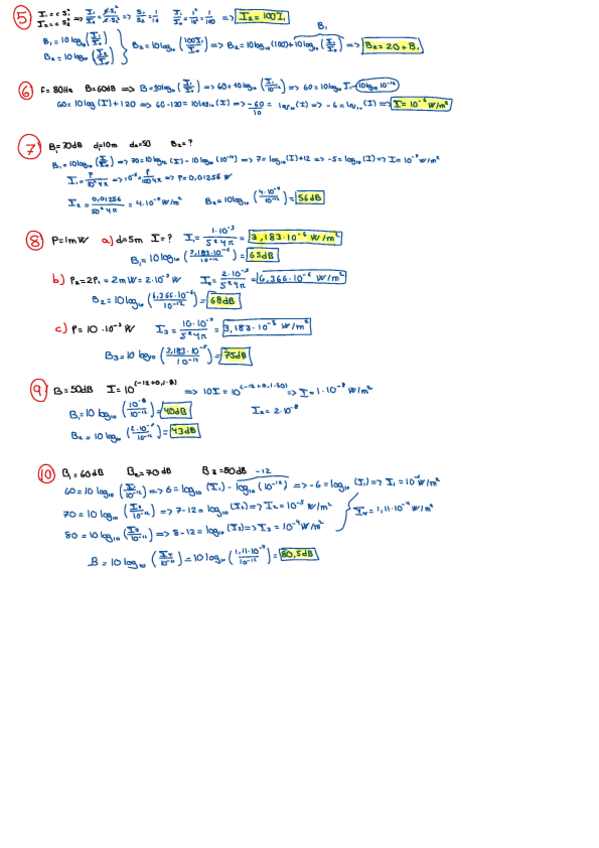 5 I₁ = c S₁² I₂ = c S₂² => I₁/I₂ = c·S₁²/c·S₂² => S₁/S₂ = 1/10 I₁/I₂ = 1²/10² = 1/100 => I₂ = 100I₁
B₁ = 10 log₁₀ (I₁/I₀) B₂ = 10 log₁₀ (I₂/I₀) } B₂ = 10 log₁₀ (100I₁/I₀) => B₂ = 10 log₁₀ (100) + 10 log₁₀ (I₁/I₀) => B₂ = 20 + B₁
B₁
6 f = 80Hz B = 60dB => B = 10 log₁₀ (I₁/I₀) => 60 = 10 log₁₀ (I₁/10⁻¹²) => 60 = 10 log₁₀ I₁ - 10 log 10⁻¹²
60 = 10 log (I) + 120 => 60 - 120 = 10 log₁₀ (I) => -60/10 = log₁₀ (I) => -6 = log₁₀ (I) => I = 10⁻⁶ W/m²
7 B₁ = 70dB d₁ = 10m d₂ = 50 B₂ = ?
B₁ = 10 log₁₀ (I/I₀) => 70 = 10 log₁₀ (I) - 10 log (10⁻¹²) => 7 = log₁₀ (I) + 12 => -5 = log₁₀ (I) => I = 10⁻⁵ W/m²
I₁ = P/10²4π => 10⁻⁵ = P/100 4π => P = 0,01256 W
I₂ = 0,01256/50² 4π = 4·10⁻⁷ W/m² B₂ = 10 log₁₀ (4·10⁻⁷/10⁻¹²) = 56dB
8 P = 1mW a) d = 5m I = ? I₁ = 1·10⁻³/5² 4π = 3,183·10⁻⁶ W/m²
B₁ = 10 log₁₀ (3,183·10⁻⁶/10⁻¹²) = 65dB
b) P₂ = 2P₁ = 2mW = 2·10⁻³ W I₂ = 2·10⁻³/5² 4π = 6,366·10⁻⁶ W/m²
B₂ = 10 log₁₀ (6,366·10⁻⁶/10⁻¹²) = 68dB
c) P = 10·10⁻³ W I₃ = 10·10⁻³/5² 4π = 3,183·10⁻⁵ W/m²
B₃ = 10 log₁₀ (3,183·10⁻⁵/10⁻¹²) = 75dB
9 B = 50dB I = 10^(-12+0,1·B) => 10I = 10^(-12+0,1·50) => I = 1·10⁻⁸ W/m²
B₁ = 10 log₁₀ (10⁻⁸/10⁻¹²) = 40dB I₂ = 2·10⁻⁸
B₂ = 10 log₁₀ (2·10⁻⁸/10⁻¹²) = 43dB
10 B₁ = 60dB B₂ = 70dB B₃ = 80dB -12
60 = 10 log₁₀ (I₁/10⁻¹²) => 6 = log₁₀ (I₁) - log₁₀ (10⁻¹²) => -6 = log₁₀ (I₁) => I₁ = 10⁻⁶ W/m²
70 = 10 log₁₀ (I₂/10⁻¹²) => 7-12 = log₁₀ (I₂) => I₂ = 10⁻⁵ W/m² I_T = 1,11·10⁻⁴ W/m²
80 = 10 log₁₀ (I₃/10⁻¹²) => 8-12 = log₁₀ (I₃) => I₃ = 10⁻⁴ W/m²
B = 10 log₁₀ (I_T/10⁻¹²) = 10 log₁₀ (1,11·10⁻⁴/10⁻¹²) = 80,5dB